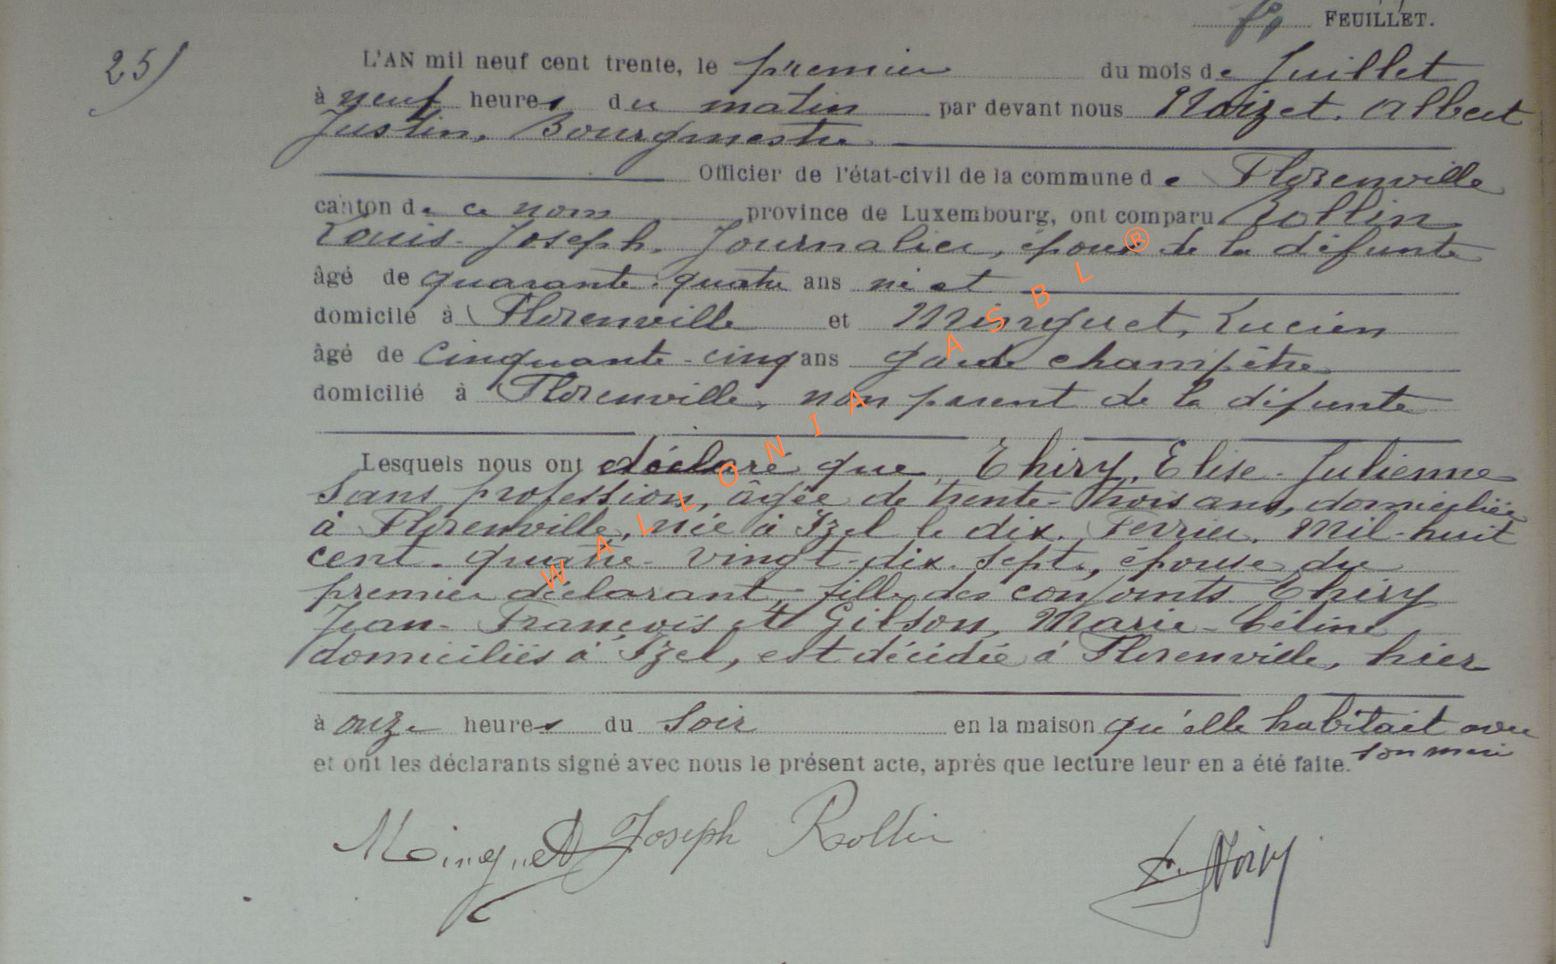 FEUILLET.
25)
L'AN mil neuf cent trente, le premier du mois de Juillet
à neuf heures du matin par devant nous Noizet. Albert
Justin, Bourgmestre
Officier de l'état-civil de la commune de Florenville
canton de ce nom province de Luxembourg, ont comparu Rollin
Louis-Joseph. Journalier, époux de la défunte
âgé de quarante-quatre ans né et
domicilé à Florenville et Minguet, Lucien
âgé de Cinquante-cinq ans garde champêtre
domicilié à Florenville, non parent de la défunte
Lesquels nous ont déclaré que Thiry, Elise-Julienne
sans profession, âgée de trente-trois ans, domiciliée
à Florenville, née à Izel le dix. Février. Mil-huit
cent-quatre-vingt-dix-sept, épouse du
premier déclarant, fille des conjoints Thiry
Jean-François et Gilson, Marie-Céline
domiciliés à Izel, est décédée à Florenville, hier
à onze heures du soir en la maison qu'elle habitait avec
son mari
et ont les déclarants signé avec nous le présent acte, après que lecture leur en a été faite.
Minguet Joseph Rollin
WALLONIA ASBL ®